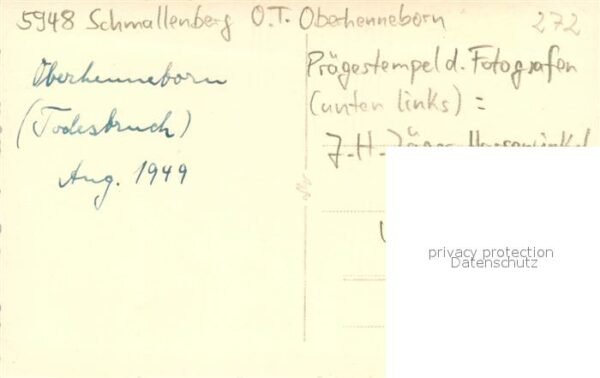 5948 Schmallenberg O.T. Oberhenneborn
272
Oberhenneborn
(Todesbruch)
Aug. 1949
Prägestempel d. Fotografen
(unten links) =
J.-H. Jäger
privacy protection
Datenschutz